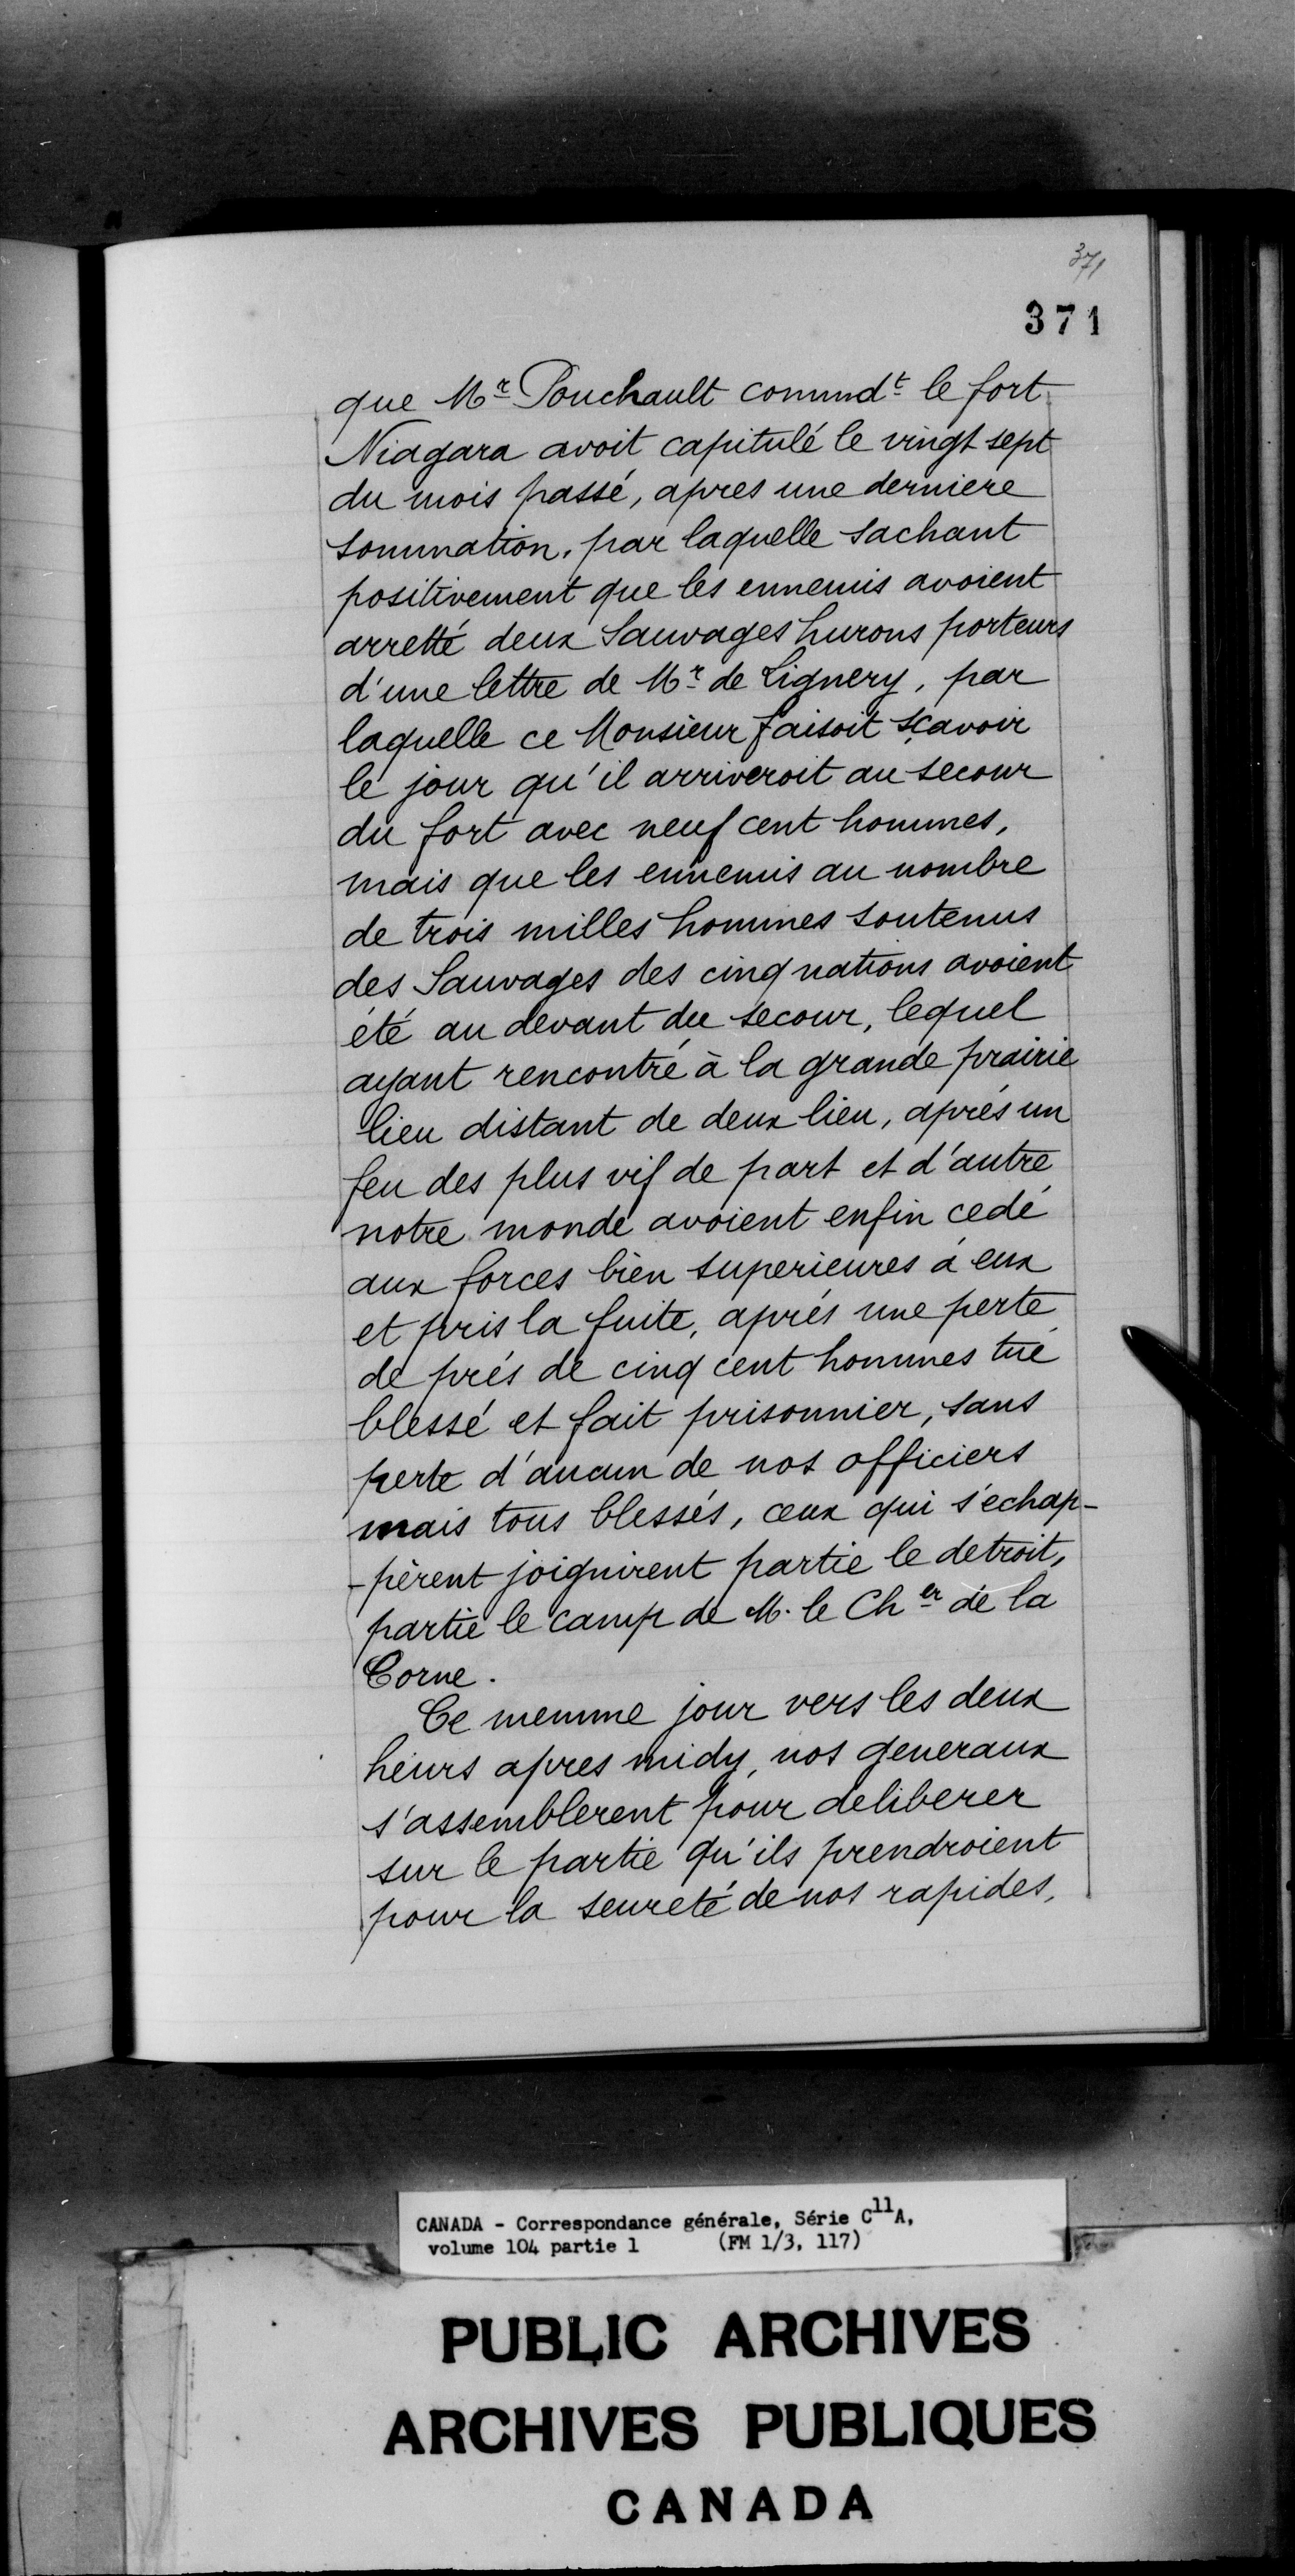 371
371
que Mr Pouchault commdt le fort
Niagara avoit capitulé le vingt sept
du mois passé, apres une derniere
sommation, par laquelle sachant
positivement que les ennemis avoient
arretté deux Sauvages hurons porteurs
d'une lettre de Mr de Lignery, par
laquelle ce Monsieur faisoit sçavoir
le jour qu'il arriveroit au secour
du fort avec neuf cent hommes,
mais que les ennemis au nombre
de trois milles hommes soutenus
des Sauvages des cinq nations avoient
été au devant du secour, lequel
ayant rencontré à la grande prairie
lieu distant de deux lieu, aprés un
feu des plus vif de part et d'autre
notre monde avoient enfin cedé
aux forces bien superieures à eux
et pris la fuite, aprés une perte
de prés de cinq cent hommes tué
blessé et fait prisonnier, sans
perte d'aucun de nos officiers
mais tous blessés, ceux qui s'echap-
-pèrent joignirent partie le detroit,
partie le camp de M. le Cher de la
Corne.
Ce memme jour vers les deux
heurs apres midy, nos generaux
s'assemblerent pour deliberer
sur le partie qu'ils prendroient
pour la seureté de nos rapides,
CANADA - Correspondance générale, Série C11A,
volume 104 partie 1 (FM 1/3, 117)
PUBLIC ARCHIVES
ARCHIVES PUBLIQUES
CANADA